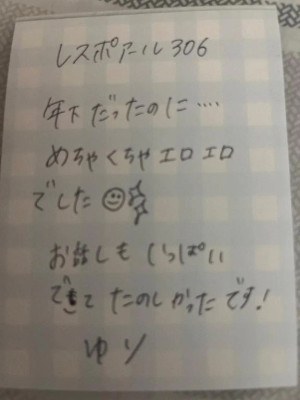 レスポアール306
年下だったのに....
めちゃくちゃエロエロ
でした
お話しもいっぱい
できてたのしかったです!
ゆり